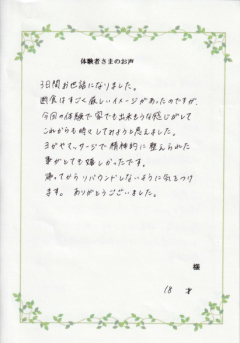 体験者さまのお声
3日間お世話になりました。
断食はすごく厳しいイメージがあったのですが、
今回の体験で家でも出来そうな感じがして
これからも時々しておようと思えました。
ヨガやマッサージで精神的に整えられた
事がとても嬉しかったです。
帰ってからリバウンドしないように気をつけ
ます。ありがとうございました。
様
18 才